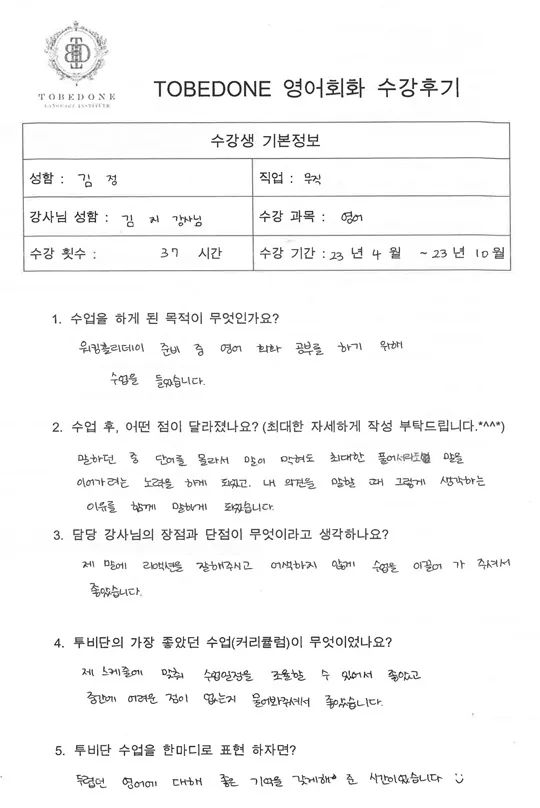 TOBEDONE
LANGUAGE INSTITUTE
TOBEDONE 영어회화 수강후기
수강생 기본정보
성함 : 김 정
직업 : 무직
강사님 성함 : 김 지 강사님
수강 과목 : 영어
수강 횟수 : 37 시간
수강 기간 : 23 년 4 월 ~ 23 년 10 월
1. 수업을 하게 된 목적이 무엇인가요?
워킹홀리데이 준비 중 영어 회화 공부를 하기 위해
수업을 들었습니다.
2. 수업 후, 어떤 점이 달라졌나요? (최대한 자세하게 작성 부탁드립니다.*^^*)
말하던 중 단어를 몰라서 말이 막혀도 최대한 풀어서라도 말을
이어가려는 노력을 하게 되었고, 내 의견을 말할 때 그렇게 생각하는
이유를 함께 말하게 되었습니다.
3. 담당 강사님의 장점과 단점이 무엇이라고 생각하나요?
제 말에 리액션을 잘해주시고 어색하지 않게 수업을 이끌어 가 주셔서
좋았습니다.
4. 투비단의 가장 좋았던 수업(커리큘럼)이 무엇이었나요?
제 스케줄에 맞춰 수업일정을 조율할 수 있어서 좋았고
중간에 어려운 점이 없는지 물어봐주셔서 좋았습니다.
5. 투비단 수업을 한마디로 표현 하자면?
두렵던 영어에 대해 좋은 기억을 갖게해 준 시간이었습니다